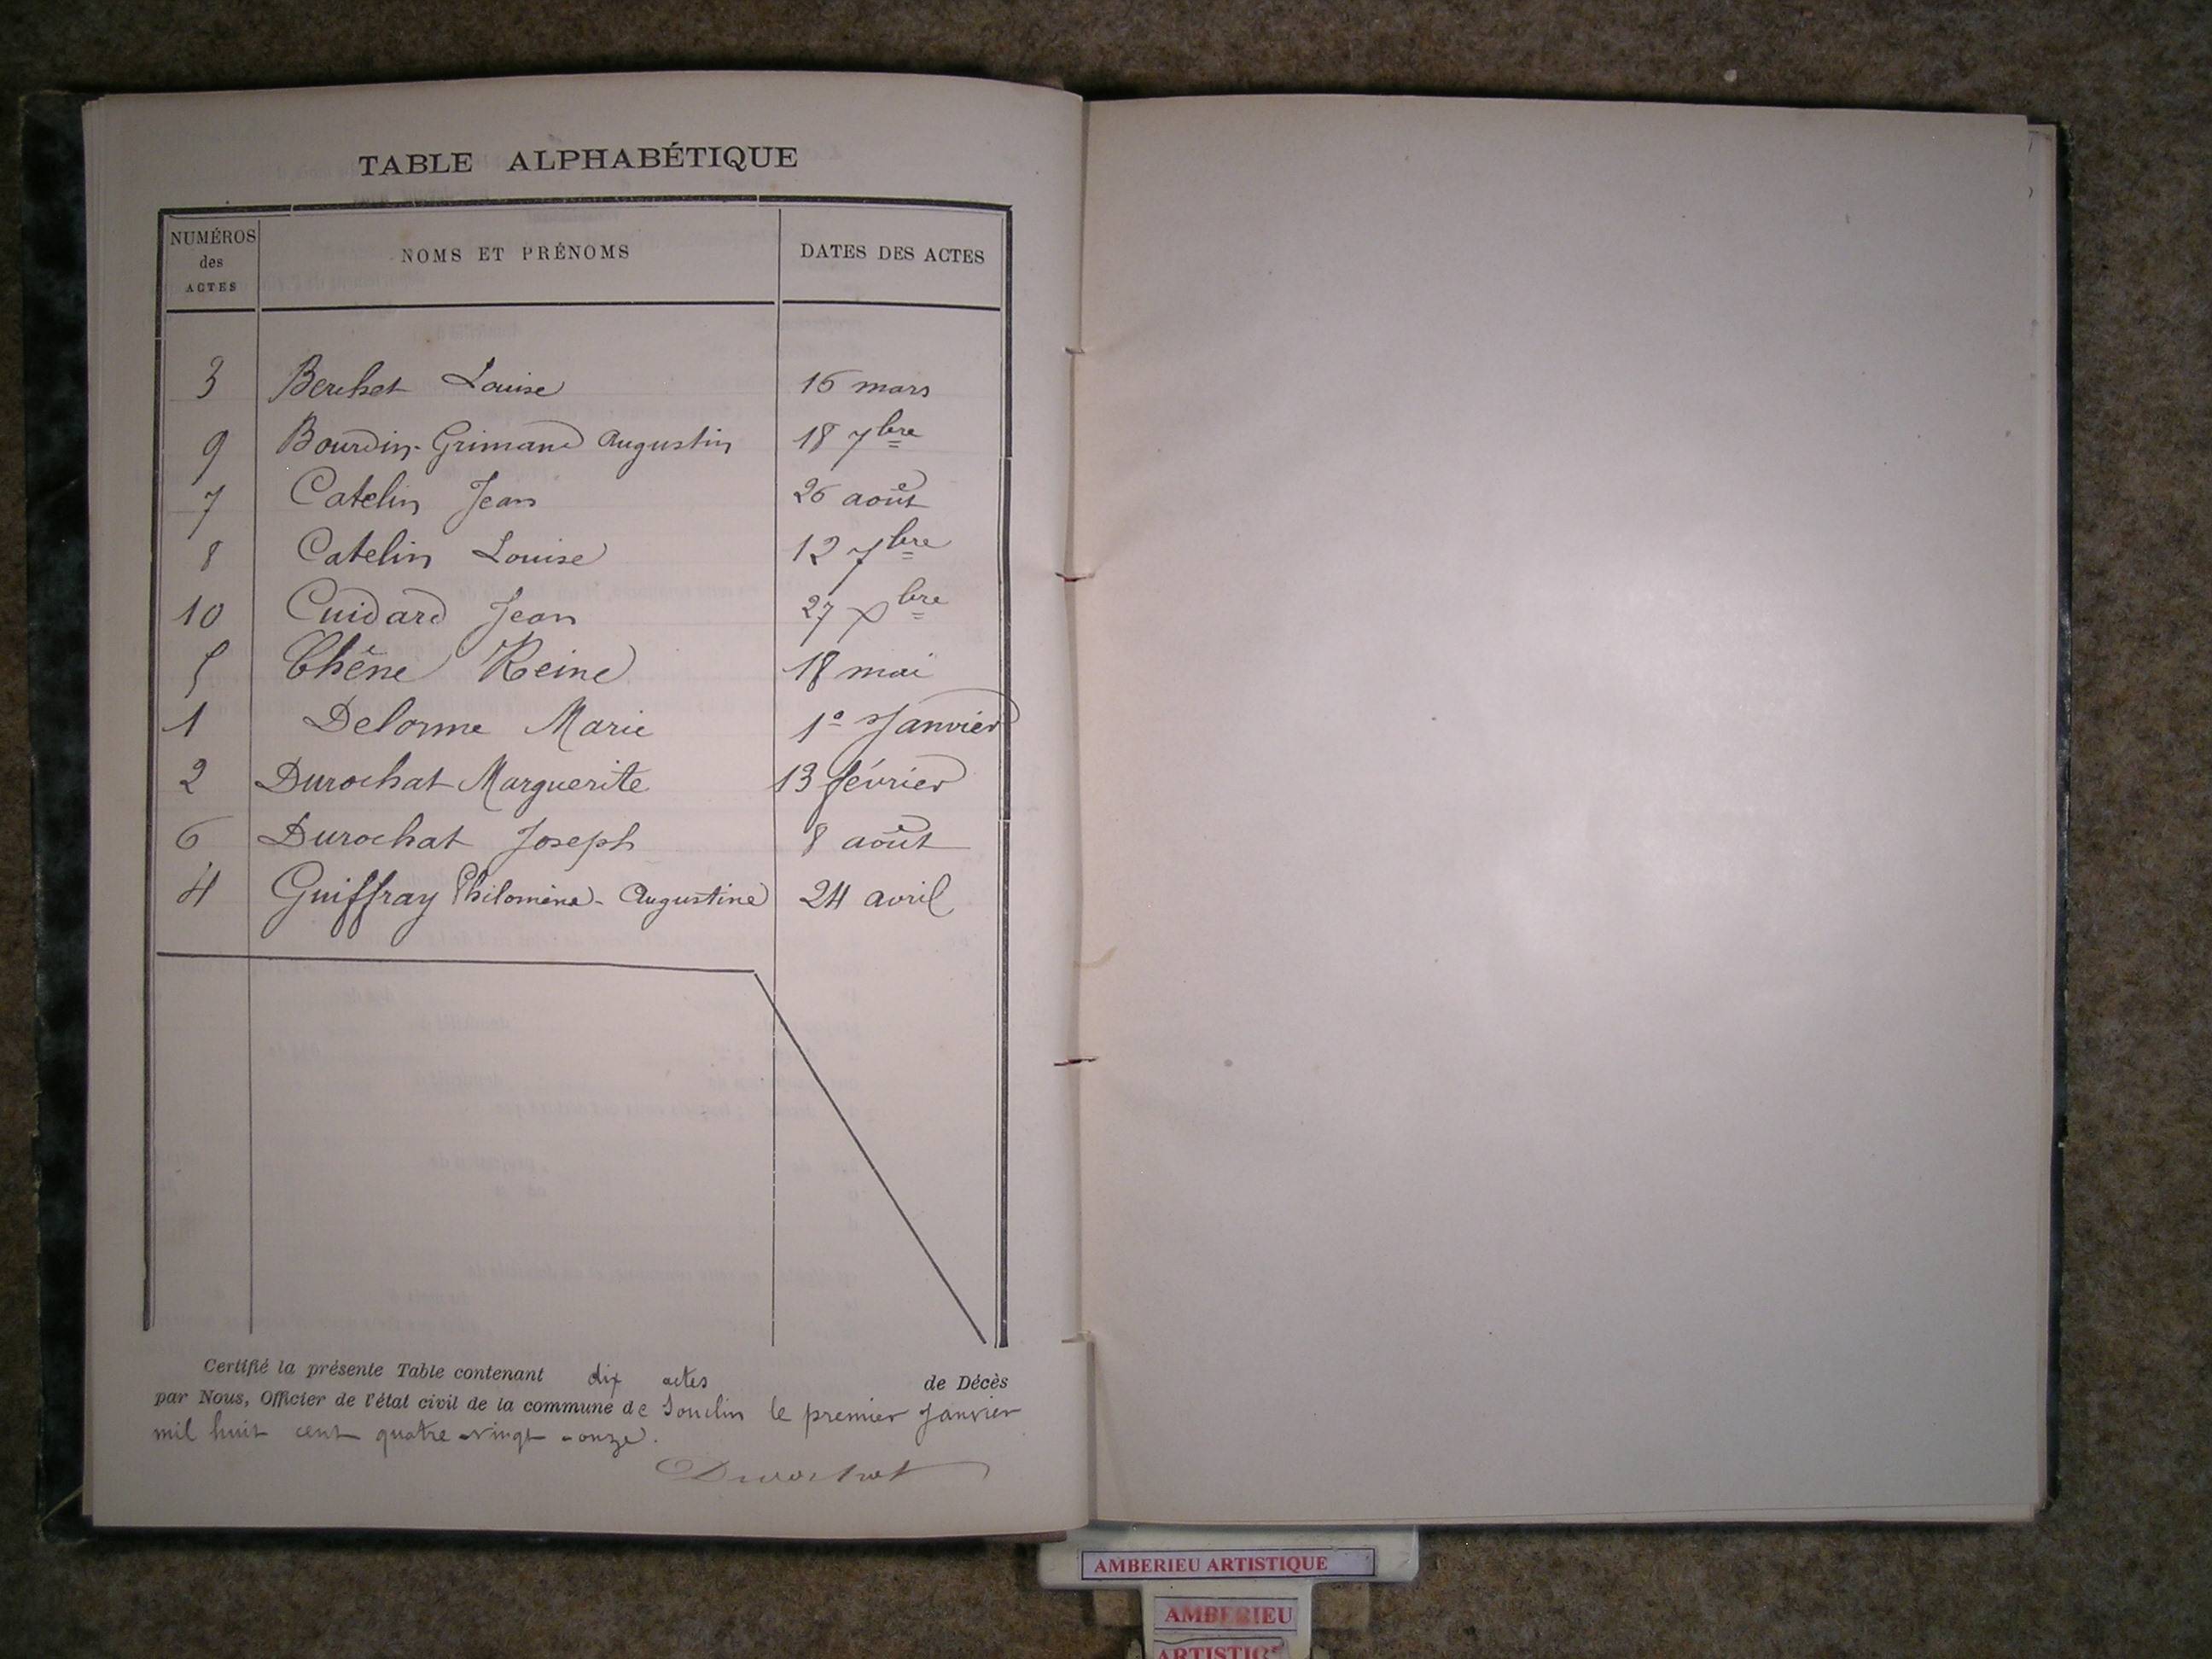 TABLE ALPHABÉTIQUE
NUMÉROS des ACTES NOMS ET PRÉNOMS DATES DES ACTES
3 Berchet Louise 16 mars
9 Bourdin-Grimand Augustin 18 7bre
7 Catelin Jean 26 août
8 Catelin Louise 12 7bre
10 Cuidard Jean 27 Xbre
5 Chêne Reine 18 mai
1 Delorme Marie 1e Janvier
2 Durochat Marguerite 13 février
6 Durochat Joseph 8 août
4 Guiffray Philomène-Augustine 24 avril
Certifié la présente Table contenant dix actes de Décès
par Nous, Officier de l'état civil de la commune de Souclin le premier Janvier
mil huit cent quatre-vingt-onze.
Durochat
AMBERIEU ARTISTIQUE
AMBERIEU
ARTISTIQUE